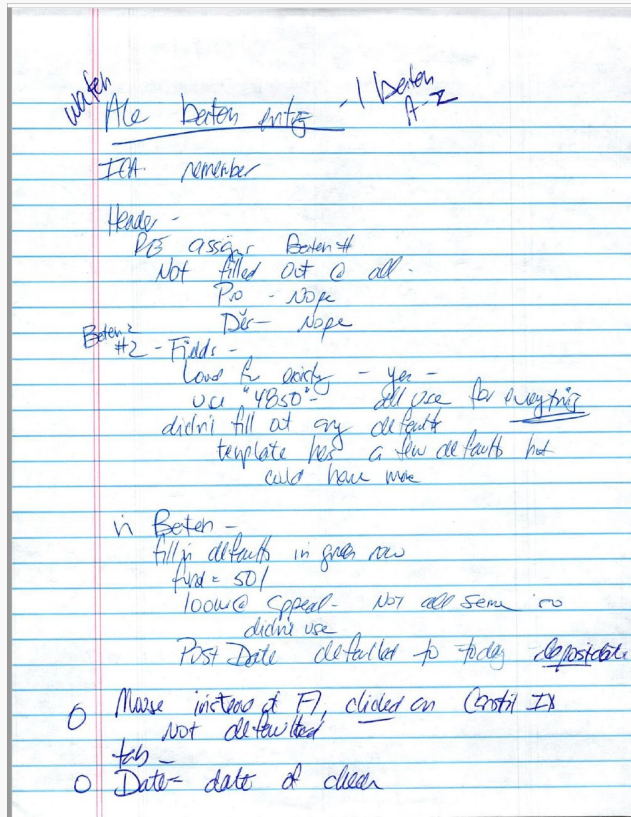 watch
Ale batch entry - 1 batch
A-Z
ICA remember
Header -
RE assigns Batch #
Not filled out @ all.
Pro - Nope
Des - Nope
Batch 2
#2 - Fields -
Load fr existing - yes -
use "4850" - all use for everything
didn't fill out any defaults
template has a few defaults but
could have more
in Batch -
fill in defaults in green row
fund = 501
looked @ appeal - Not all same so
didn't use
Post Date defaulted to today depositdate
O Mouse instead of F7, clicked on Constit ID
Not defaulted
tab -
O Date = date of check